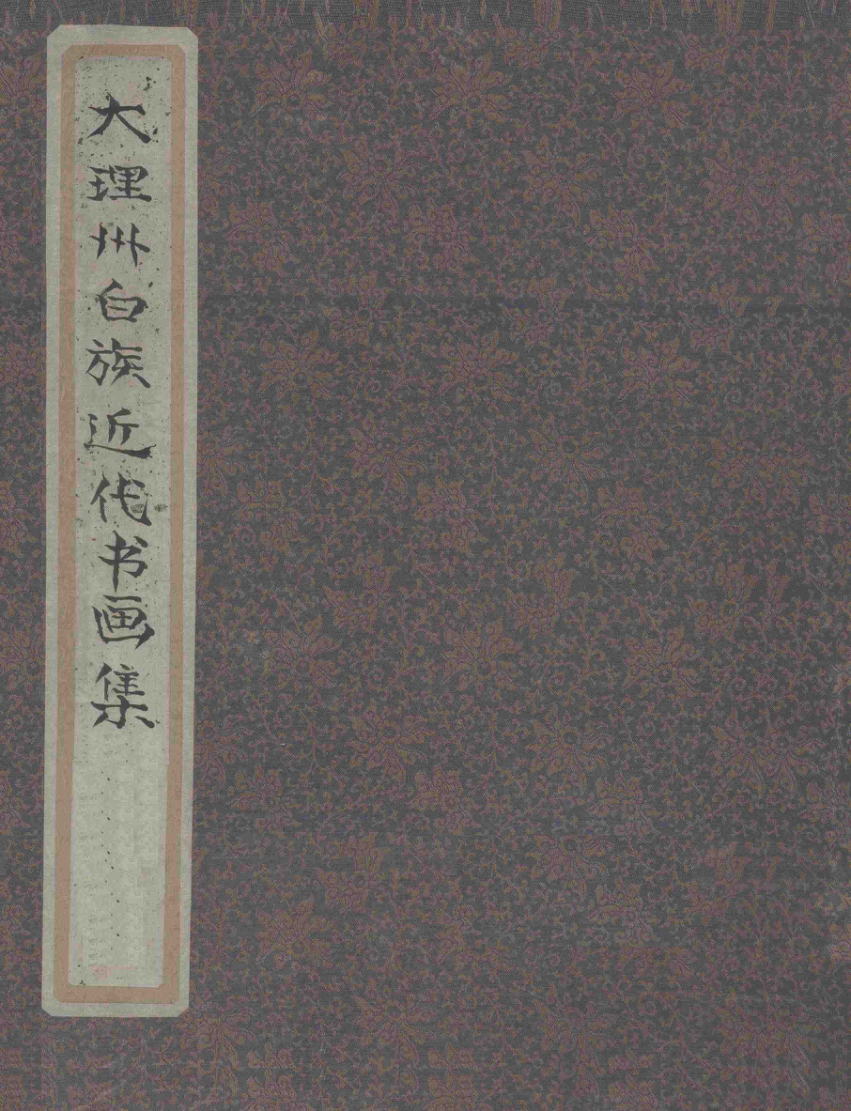 大理州白族近代书画集